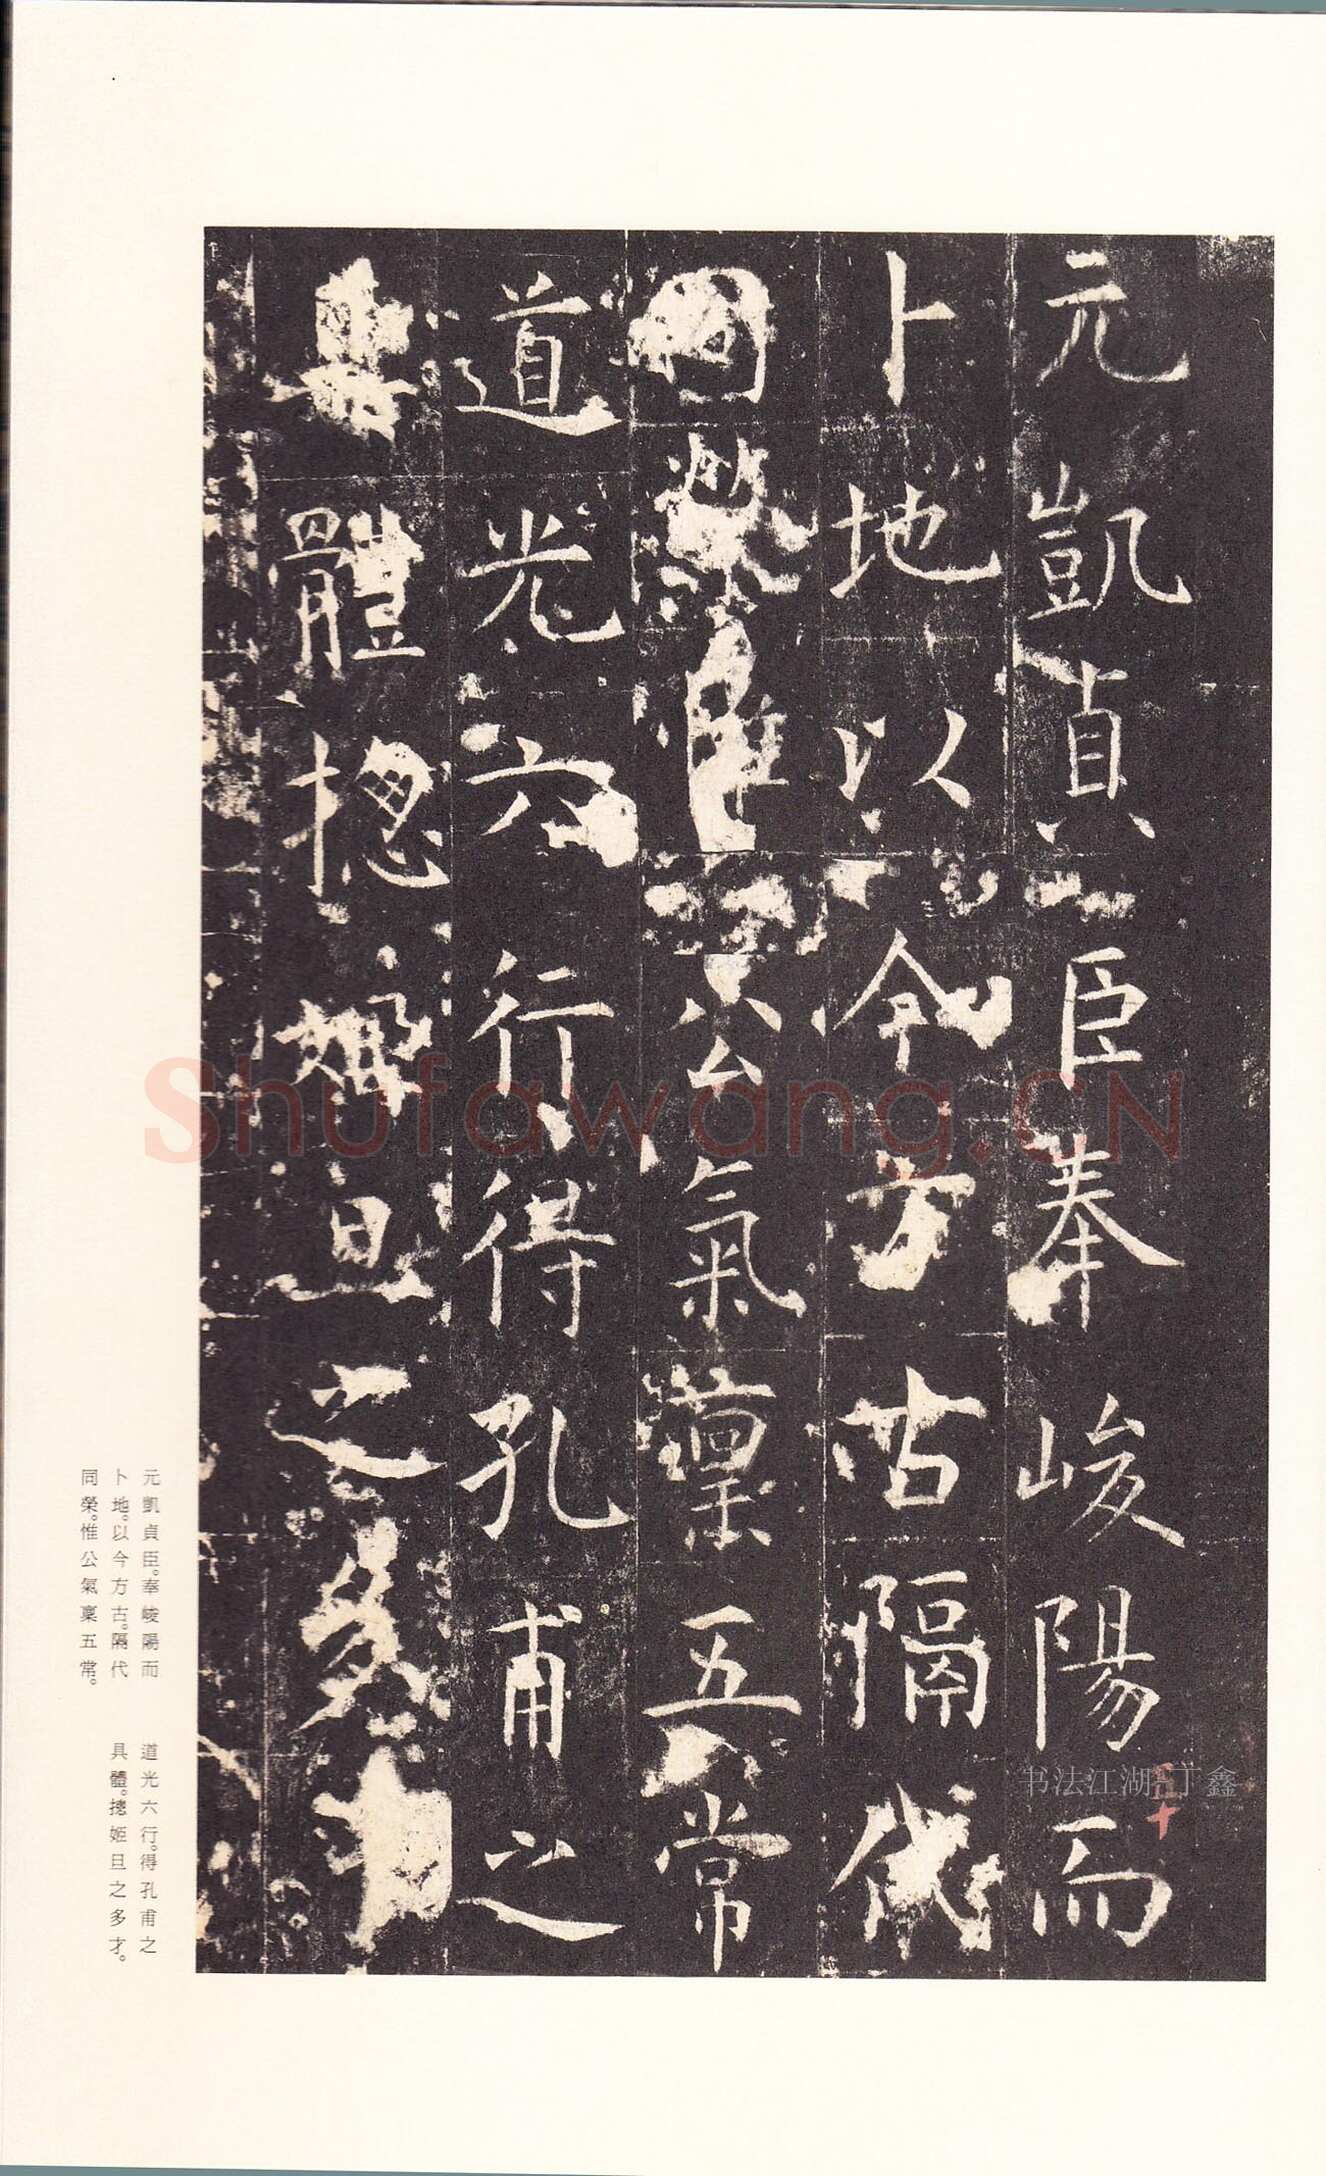 元凱貞臣奉峻陽而
卜地以今方古隔代
同榮惟公氣稟五常
道光六行得孔甫之
具體摠姬旦之多才
元凱貞臣。奉峻陽而
卜地。以今方古。隔代
同榮。惟公氣稟五常。
道光六行。得孔甫之
具體。摠姬旦之多才。
Shufawang.CN
书法江湖 丁鑫